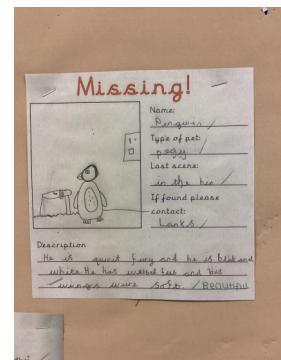 Missing!
Name:
Penguin
Type of pet:
Last scene:
in the
If found please
contact:
Description
He is quuit and he is black and
white He has webbed feet and his
wings were soft. Beautiful